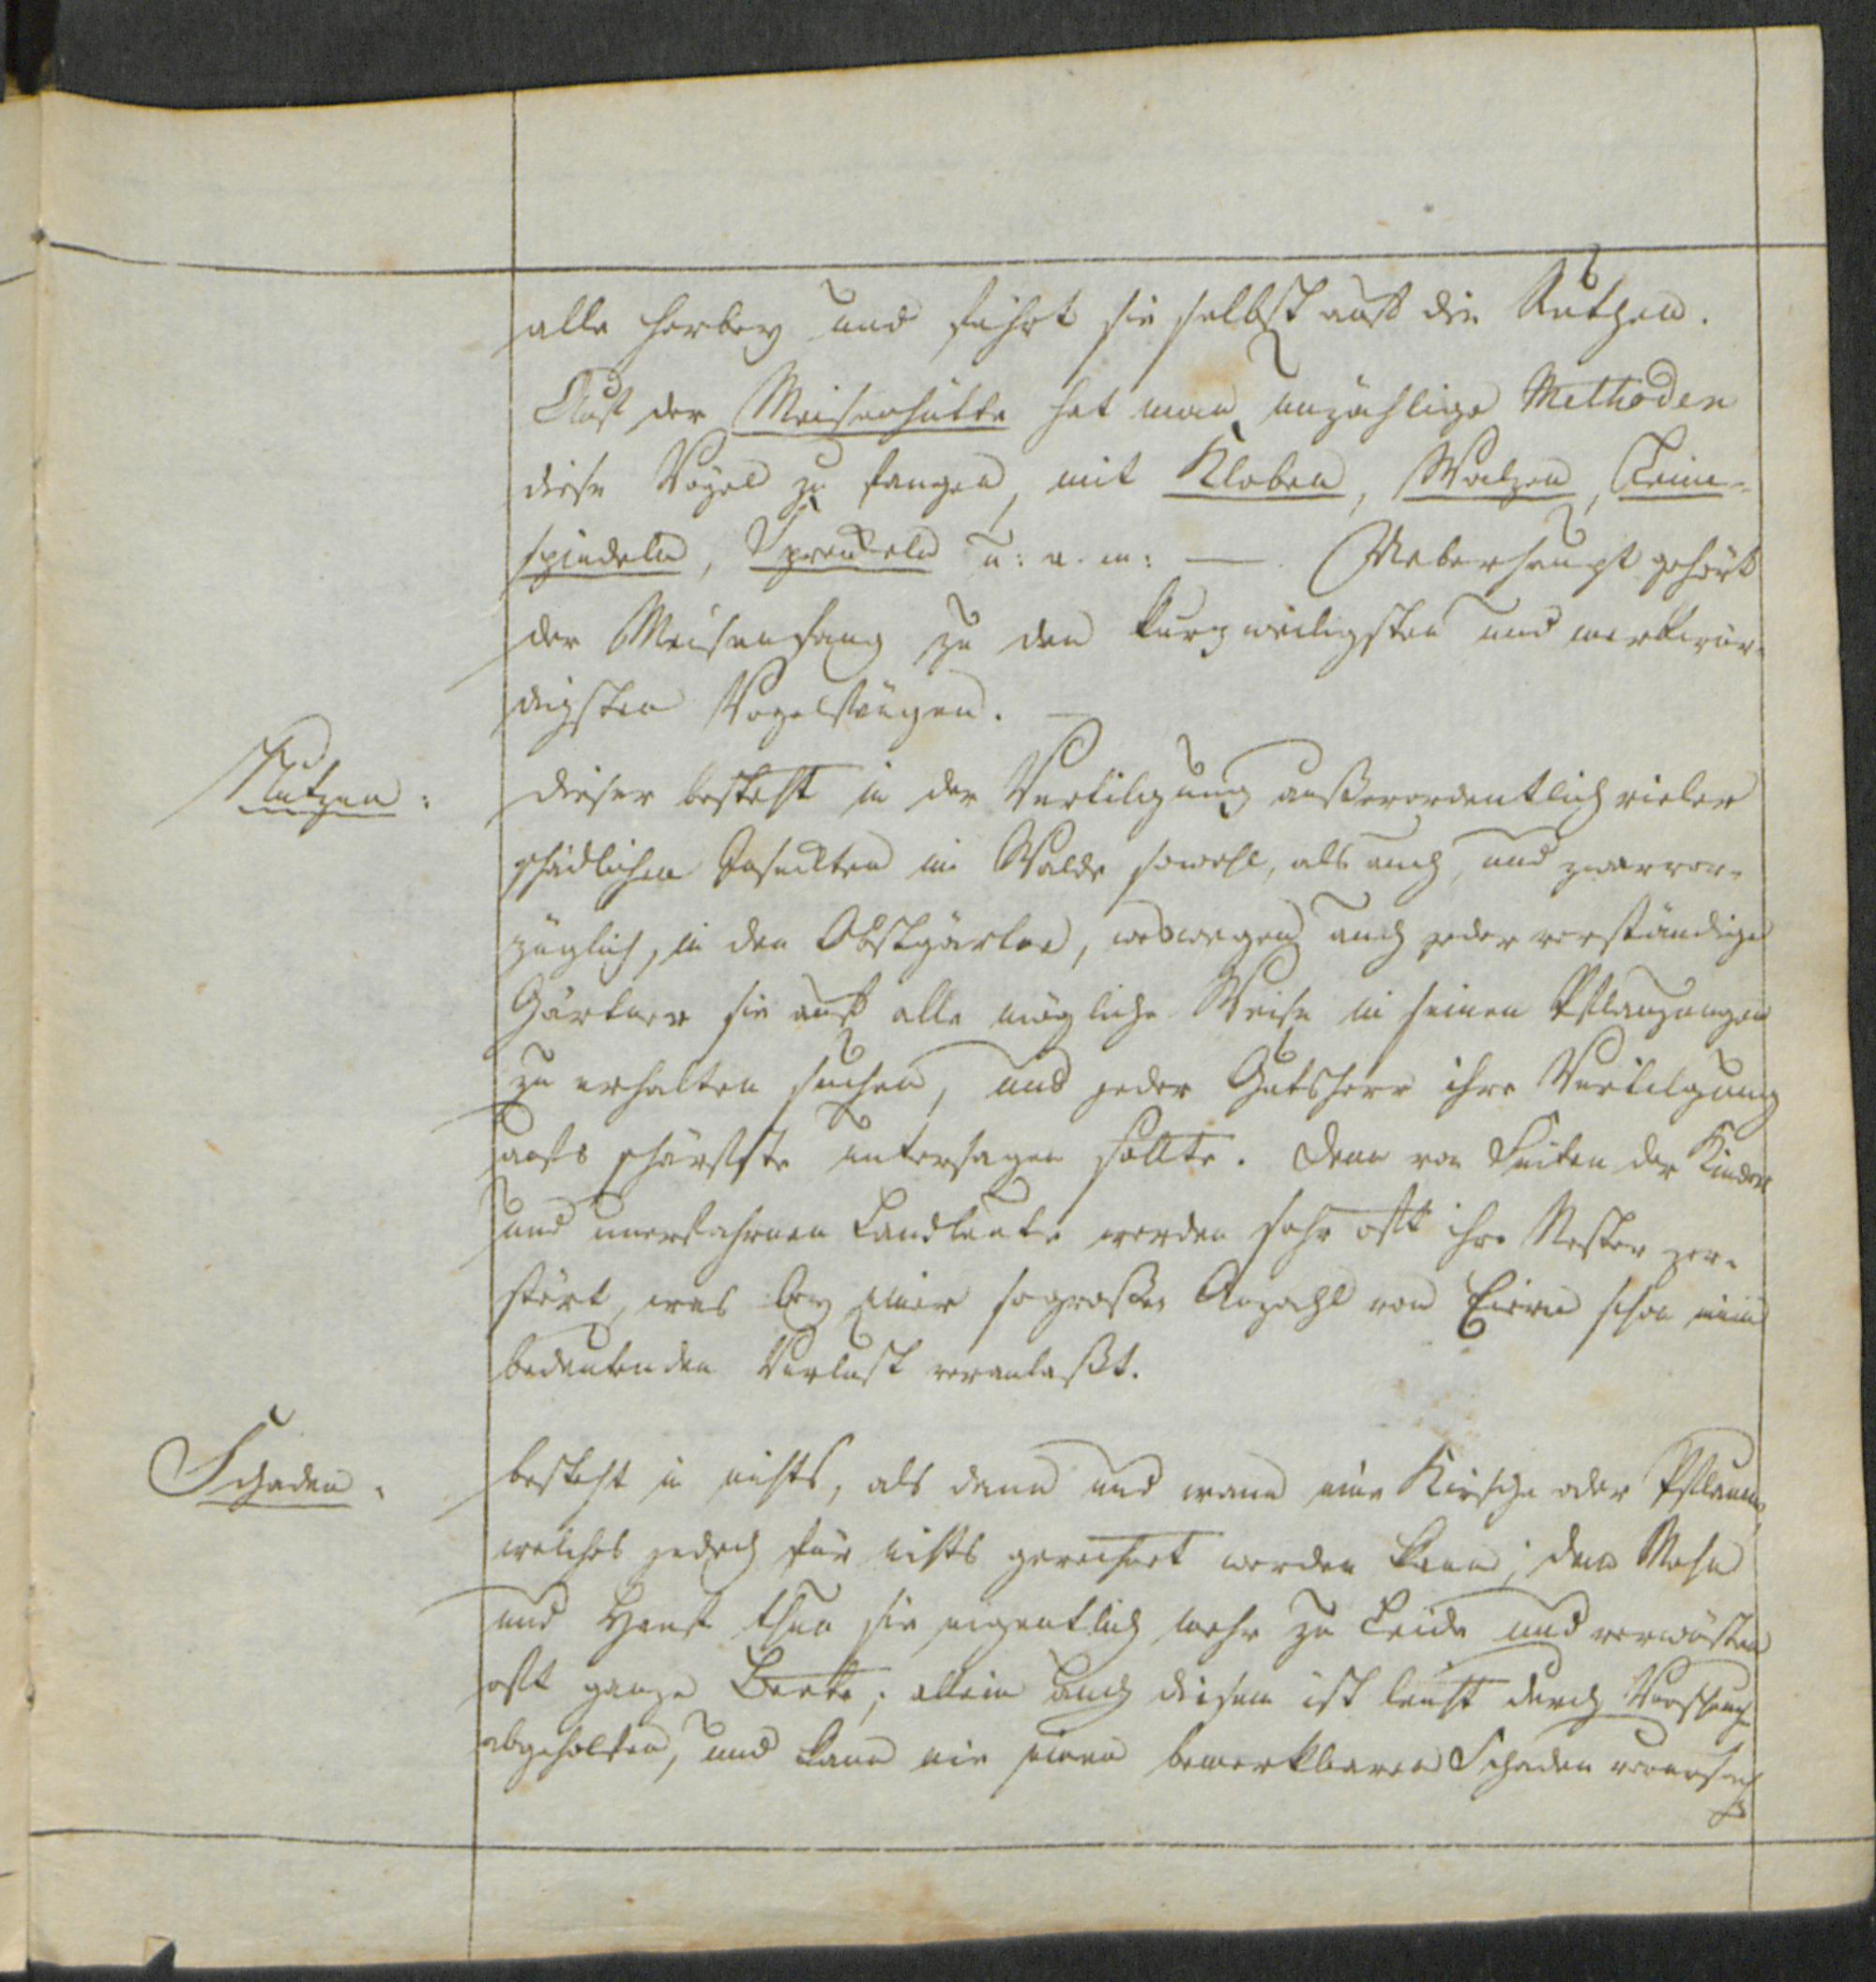 alle herbey und führt sie selbst auf die Ruthen.
Auß der Meisenhütte hat man unzählige Methoden
diese Vögel zu fangen, mit Kloben, Walzen, Leim-
spindeln, Sprenkeln u: a. m: —. Ueberhaupt gehört
der Meisenfang zu den kurzweiligsten und merkwür-
digsten Vogelfängen. —
Nutzen:
dieser besteht in der Vertilgung außerordentlich vieler
schädlichen Inseckten im Walde sowohl, als auch, und zwar vor-
züglich, in den Obstgärten, weswegen auch jeder verständige
Gärtner sie auf alle mögliche Weise in seinen Pflanzungen
zu erhalten suchen, und jeder Gutsherr ihre Vertilgung
aufs schärfste untersagen sollte. denn von Seiten der Kinder
und unerfahrnen Landleute werden sehr oft ihre Nester zer-
stört, was bey einer so großen Anzahl von Eiern schon einen
bedeutenden Verlust veranlaßt.
Schaden.
besteht in nichts, als dann und wann eine Kirsche oder Pflaume,
welches jedoch für nichts gerechnet werden kann; dem Mohn
und Hanf thun sie eigentlich mehr zu Leide und verwüsten
oft ganze Beete; allein auch diesem ist leicht durch
abgeholfen, und kann nie einen bemerkbaren Schaden verursach